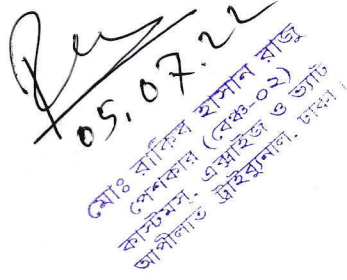 05.07.22
মোঃ রাকিব হাসান রাজু
পেশকার (বেঞ্চ-০২)
কাস্টমস, এক্সাইজ ও ভ্যাট
আপীলাত ট্রাইব্যুনাল, ঢাকা।